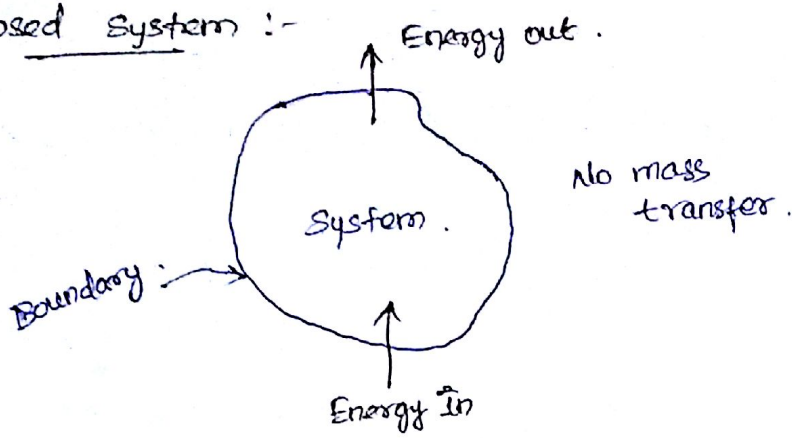 osed System :-
Energy out .
No mass
transfer .
System .
Boundary :
Energy In